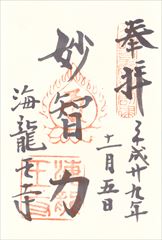 奉拝
平成廿九年
十一月五日
妙智力
海龍王寺